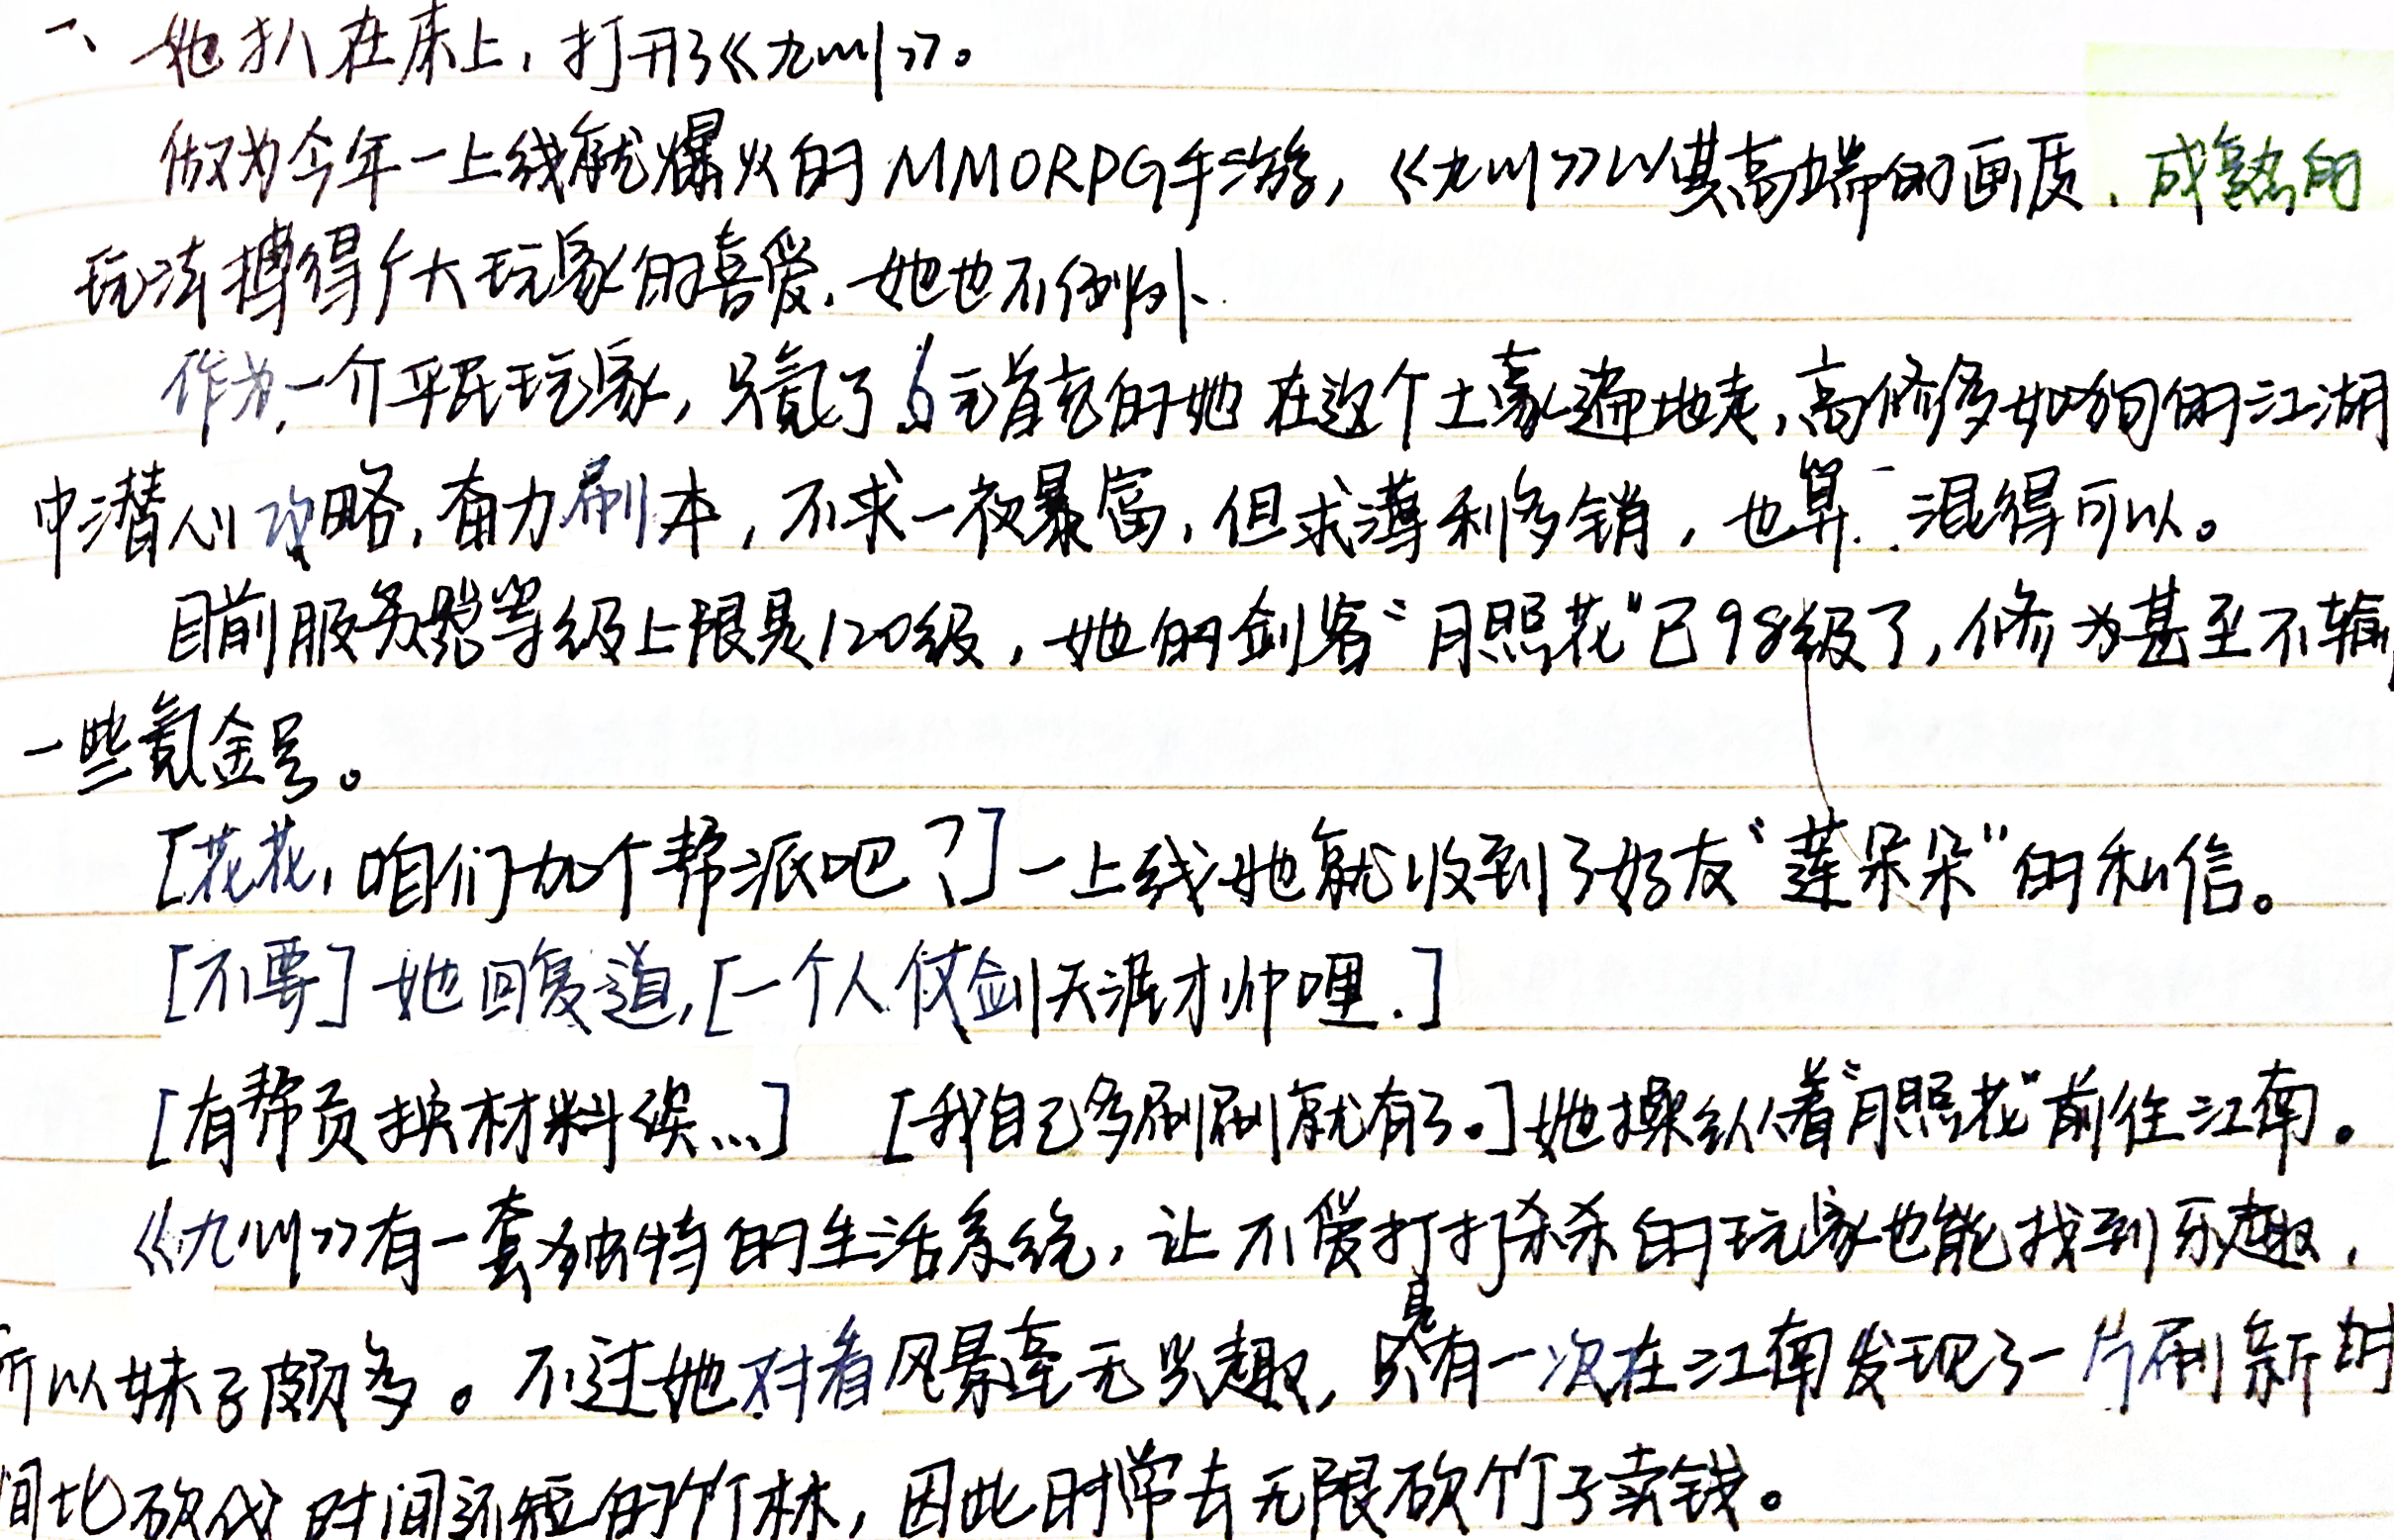 一、她扒在床上，打开了《九州》。
做为今年一上线就爆火的MMORPG手游，《九州》以其高端的画质、成熟的
玩法搏得广大玩家的喜爱，她也不例外.
作为一介平民玩家，只氪了6元首充的她在这个土豪遍地走，高修多如狗的江湖
中潜心攻略，奋力刷本，不求一夜暴富，但求薄利多销，也算混得可以。
目前服务器等级上限是120级，她的剑客“月照花”已98级了，修为甚至不输
一些氪金号。
[花花，咱们加个帮派吧？]一上线她就收到了好友“莲朵朵”的私信。
[不要]她回复道，[一个人仗剑天涯才帅哩.]
[有帮贡换材料唉...] [我自己多刷刷就有了。]她操纵着“月照花”前往江南。
《九州》有一套独特的生活系统，让不爱打打杀杀的玩家也能找到乐趣，
所以妹子颇多。不过她对看风景毫无兴趣，只是有一次在江南发现了一片刷新时
间比砍伐时间还短的竹林，因此时常去无限砍竹子卖钱。